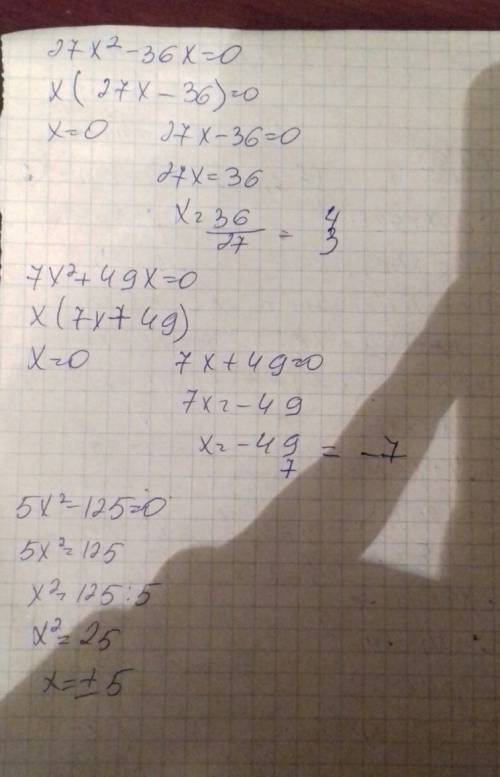 27x² - 36x = 0
x(27x - 36) = 0
x = 0 27x - 36 = 0
27x = 36
x = 36/27 = 4/3
7x² + 49x = 0
x(7x + 49)
x = 0 7x + 49 = 0
7x = -49
x = -49/7 = -7
5x² - 125 = 0
5x² = 125
x² = 125 : 5
x² = 25
x = ± 5